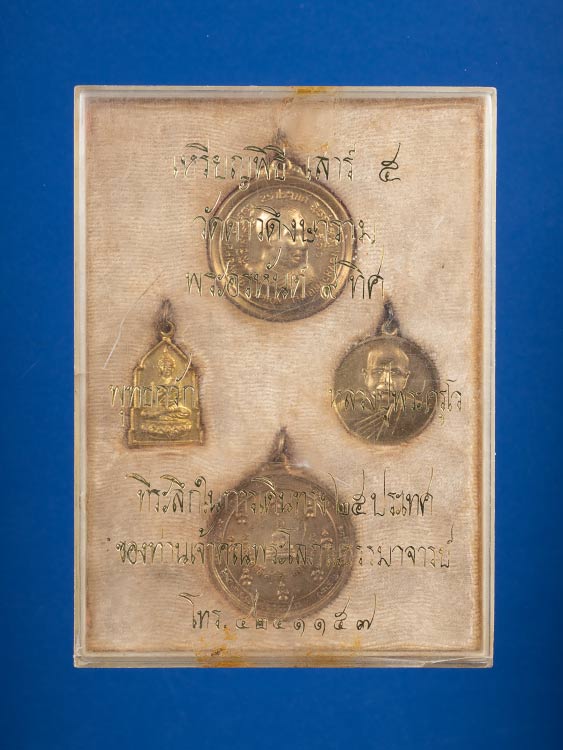 เหรียญพิธี เสาร์ ๕
วัดดาวดึงษาราม
พระอรหันต์ ๘ ทิศ
พุทธกวัก
หลวงปู่พระครูโว
ที่ระลึกในการเดินทาง ๒๕ ประเทศ
ของท่านเจ้าคุณพระโสภณธรรมาจารย์
โทร. ๔๒๔๑๑๕๗